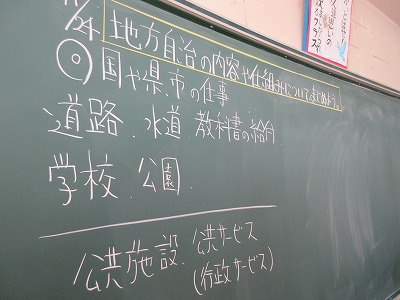 11/24 地方自治の内容や仕組みについてまとめよう。
◎国や県、市の仕事
道路、水道 教科書の給合
学校、公園
公共施設、公共サービス
(行政サービス)